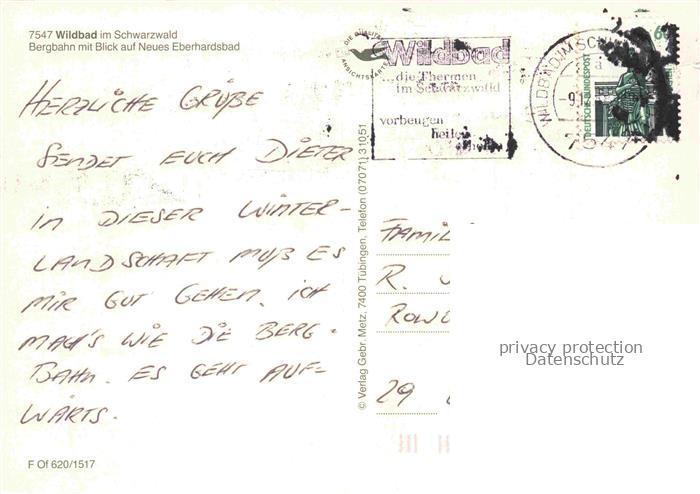 7547 Wildbad im Schwarzwald
Bergbahn mit Blick auf Neues Eberhardsbad
HERZLICHE GRÜßE
SENDET EUCH DIETER
IN DIESER WINTER-
LANDSCHAFT MUß ES
MIR GUT GEHEN. ICH
MACH'S WIE DIE BERG-
BAHN. ES GEHT AUF-
WÄRTS.
F Of 620/1517
© Verlag Gebr. Metz, 7400 Tübingen, Telefon (07071) 31051
DIE QUALITÄTS
ANSICHTSKARTE
Wildbad
...die Thermen
im Schwarzwald
vorbeugen
heilen
WILDBAD IM SCHW
9
7547
DEUTSCHE BUNDESPOST
FAMIL
R.
29
privacy protection
Datenschutz